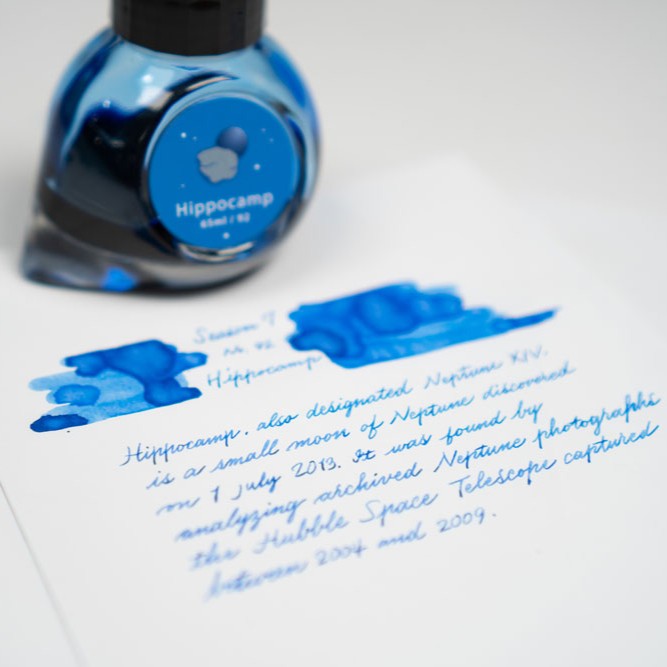 Hippocamp
65ml / 92
Season 7
No. 92
Hippocamp
Hippocamp, also designated Neptune XIV,
is a small moon of Neptune discovered
on 1 July 2013. It was found by
analyzing archived Neptune photographs
the Hubble Space Telescope captured
between 2004 and 2009.